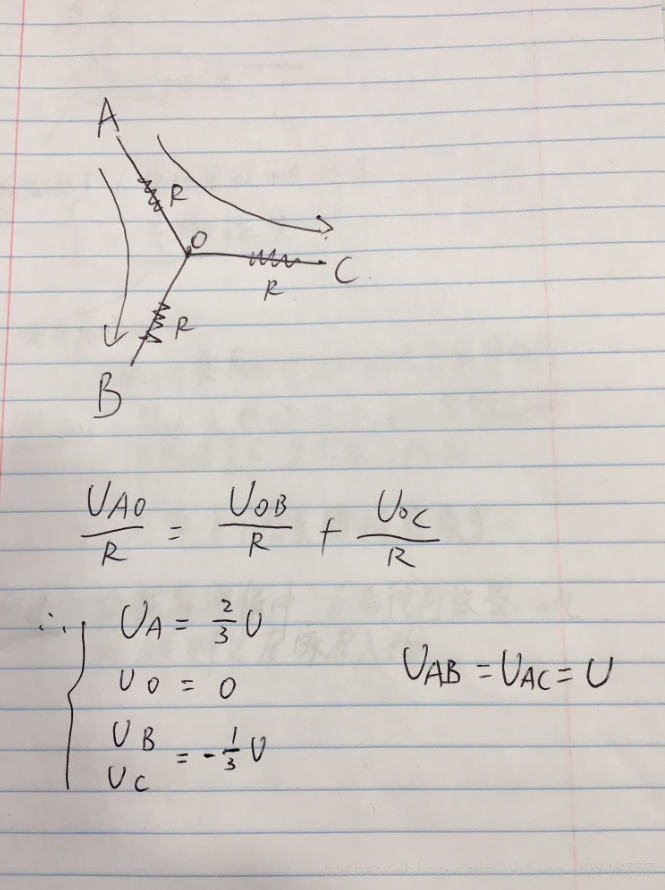 A
R
O
C
R
R
B
U_AO/R = U_OB/R + U_OC/R
∴ { U_A = 2/3 U
U_O = 0
U_AB = U_AC = U
U_B
U_C = -1/3 U